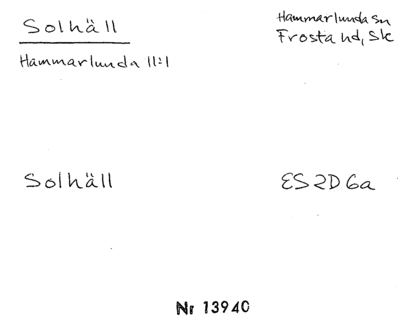 Solhäll
Hammarlunda sn
Frosta hd, Sk
Hammarlunda 11:1
Solhäll
ES 2D 6a
Nr 13940